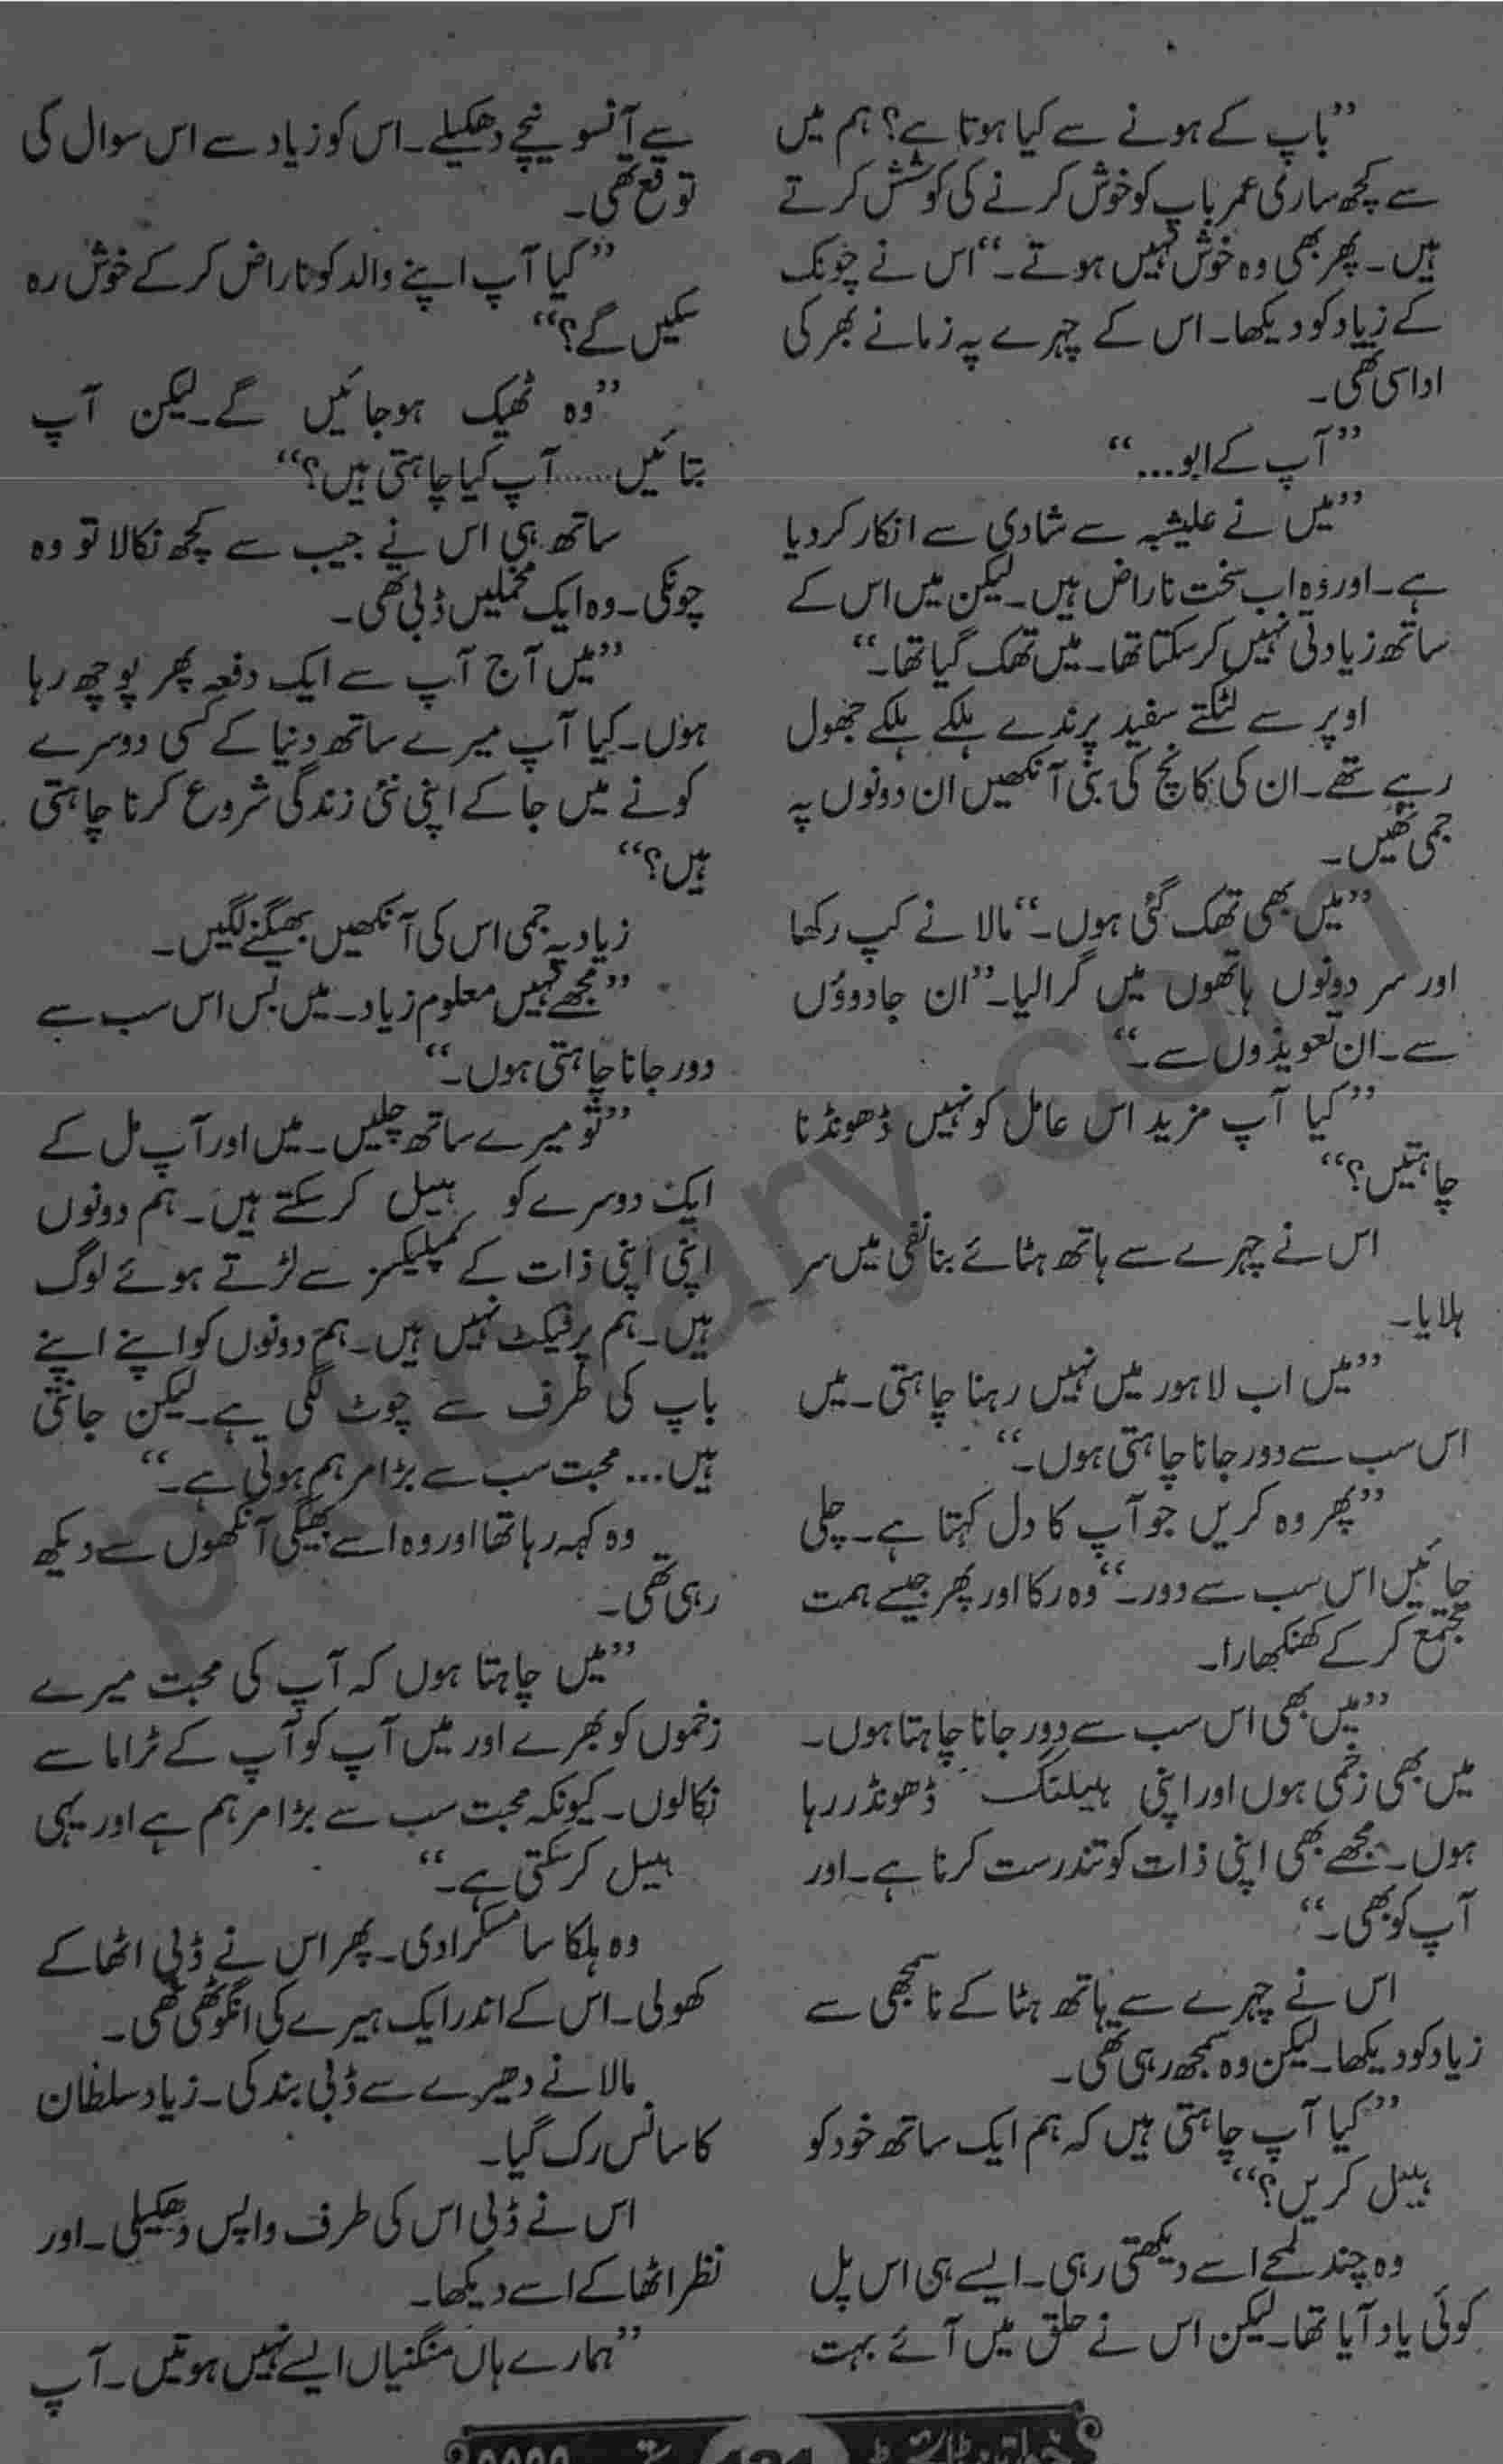 ”باپ کے ہونے سے کیا ہوتا ہے؟ ہم میں
سے کچھ ساری عمر باپ کو خوش کرنے کی کوشش کرتے
ہیں۔ پھر بھی وہ خوش نہیں ہوتے۔“ اس نے چونک
کے زیاد کو دیکھا۔ اس کے چہرے پہ زمانے بھر کی
اداسی تھی۔
”آپ کے ابو...“
”میں نے علیشبہ سے شادی سے انکار کر دیا
ہے۔ اور وہ اب سخت ناراض ہیں۔ لیکن میں اس کے
ساتھ زیادتی نہیں کر سکتا تھا۔ میں تھک گیا تھا۔“
اوپر سے لٹکتے سفید پرندے ہلکے ہلکے جھول
رہے تھے۔ ان کی کانچ کی بنی آنکھیں ان دونوں پہ
جمی تھیں۔
”میں بھی تھک گئی ہوں۔“ مالا نے کپ رکھا
اور سر دونوں ہاتھوں میں گرا لیا۔ ”ان جادوؤں
سے۔ ان تعویذوں سے۔“
”کیا آپ مزید اس عامل کو نہیں ڈھونڈنا
چاہتیں؟“
اس نے چہرے سے ہاتھ ہٹائے بنا نفی میں سر
ہلایا۔
”میں اب لاہور میں نہیں رہنا چاہتی۔ میں
اس سب سے دور جانا چاہتی ہوں۔“
”پھر وہ کریں جو آپ کا دل کہتا ہے۔ چلی
جائیں اس سب سے دور۔“ وہ رکا اور پھر جیسے ہمت
مجتمع کر کے کھنکھارا۔
”میں بھی اس سب سے دور جانا چاہتا ہوں۔
میں بھی زخمی ہوں اور اپنی ہیلنگ ڈھونڈ رہا
ہوں۔ مجھے بھی اپنی ذات کو تندرست کرنا ہے۔ اور
آپ کو بھی۔“
اس نے چہرے سے ہاتھ ہٹا کے ناسمجھی سے
زیاد کو دیکھا۔ لیکن وہ سمجھ رہی تھی۔
”کیا آپ چاہتی ہیں کہ ہم ایک ساتھ خود کو
ہیل کریں؟“
وہ چند لمحے اسے دیکھتی رہی۔ ایسے ہی اس پل
کوئی یاد آیا تھا۔ لیکن اس نے حلق میں آئے بہت
سے آنسو نیچے دھکیلے۔ اس کو زیاد سے اس سوال کی
توقع تھی۔
”کیا آپ اپنے والد کو ناراض کر کے خوش رہ
سکیں گے؟“
”وہ ٹھیک ہو جائیں گے۔ لیکن آپ
بتائیں...... آپ کیا چاہتی ہیں؟“
ساتھ ہی اس نے جیب سے کچھ نکالا تو وہ
چونکی۔ وہ ایک مخملیں ڈبی تھی۔
”میں آج آپ سے ایک دفعہ پھر پوچھ رہا
ہوں۔ کیا آپ میرے ساتھ دنیا کے کسی دوسرے
کونے میں جا کے اپنی نئی زندگی شروع کرنا چاہتی
ہیں؟“
زیاد پہ جمی اس کی آنکھیں بھیگنے لگیں۔
”مجھے نہیں معلوم زیاد۔ میں بس اس سب سے
دور جانا چاہتی ہوں۔“
”تو میرے ساتھ چلیں۔ میں اور آپ مل کے
ایک دوسرے کو ہیل کر سکتے ہیں۔ ہم دونوں
اپنی اپنی ذات کے کمپلیکسز سے لڑتے ہوئے لوگ
ہیں۔ ہم پرفیکٹ نہیں ہیں۔ ہم دونوں کو اپنے اپنے
باپ کی طرف سے چوٹ لگی ہے۔ لیکن جانتی
ہیں... محبت سب سے بڑا مرہم ہوتی ہے۔“
وہ کہہ رہا تھا اور وہ اسے بھیگی آنکھوں سے دیکھ
رہی تھی۔
”میں چاہتا ہوں کہ آپ کی محبت میرے
زخموں کو بھرے اور میں آپ کو آپ کے ٹراما سے
نکالوں۔ کیونکہ محبت سب سے بڑا مرہم ہے اور یہی
ہیل کر سکتی ہے۔“
وہ ہلکا سا مسکرا دی۔ پھر اس نے ڈبی اٹھا کے
کھولی۔ اس کے اندر ایک ہیرے کی انگوٹھی تھی۔
مالا نے دھیرے سے ڈبی بند کی۔ زیاد سلطان
کا سانس رک گیا۔
اس نے ڈبی اس کی طرف واپس دھکیلی۔ اور
نظر اٹھا کے اسے دیکھا۔
”ہمارے ہاں منگنیاں ایسے نہیں ہوتیں۔ آپ
pklibrary.com